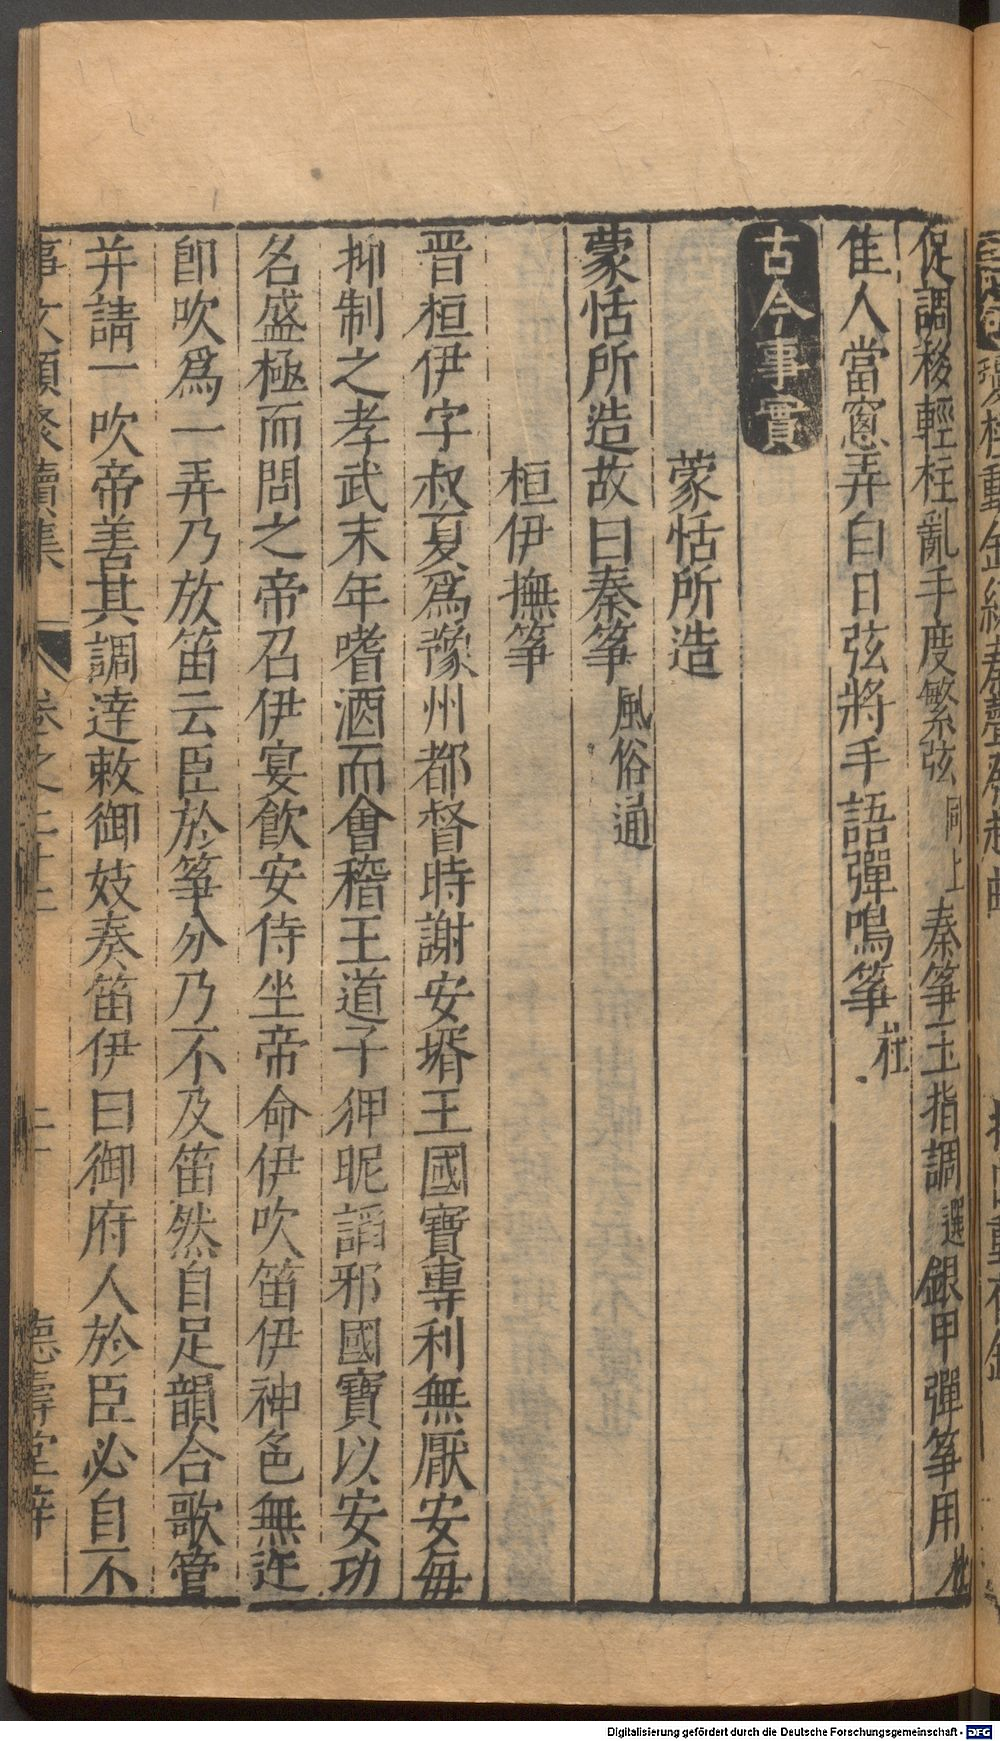 促調移輕柱亂手度繁弦同上秦箏玉指調選銀甲彈箏用杜
佳人當窻弄白日弦將手語彈鳴箏杜
古今事實
蒙恬所造
蒙恬所造故曰秦箏風俗通
桓伊撫箏
晋桓伊字叔夏爲豫州都督時謝安壻王國寶專利無厭安毎
抑制之孝武末年嗜酒而會稽王道子狎昵諂邪國寶以安功
名盛極而問之帝召伊宴飮安侍坐帝命伊吹笛伊神色無迕
卽吹爲一弄乃放笛云臣於箏分乃不及笛然自足韻合歌管
并請一吹帝善其調達敕御妓奏笛伊曰御府人於臣必自不
事文類聚續集 卷之二十二 二十 德壽堂梓
Digitalisierung gefördert durch die Deutsche Forschungsgemeinschaft - DFG